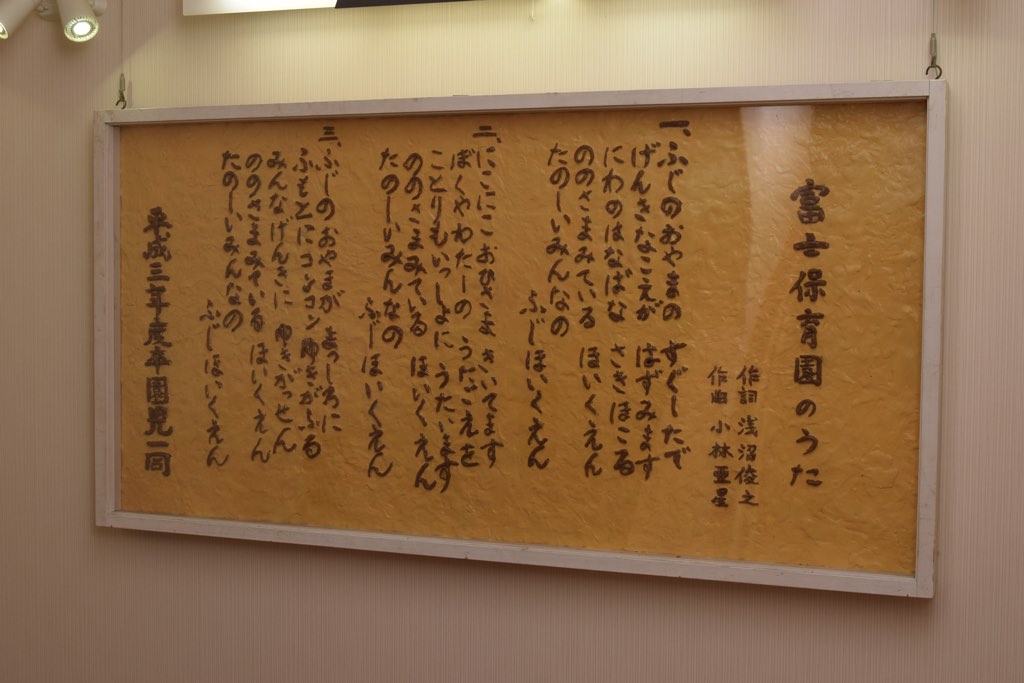 富士保育園のうた
作詞 浅沼俊之
作曲 小林亜星
一、ふじのおやまの すぐしたで
げんきなこえが はずみます
にわのはなばな さきほこる
ののさまみている ほいくえん
たのしいみんなの
ふじほいくえん
二、にこにこ おひさま きいてます
ぼくやわたしの うたごえを
ことりもいっしょに うたいます
ののさまみている ほいくえん
たのしいみんなの
ふじほいくえん
三、ふじのおやまが まっしろに
ふもとにコンコン ゆきがふる
みんなげんきに ゆきがっせん
ののさまみている ほいくえん
たのしいみんなの
ふじほいくえん
平成三年度卒園児一同